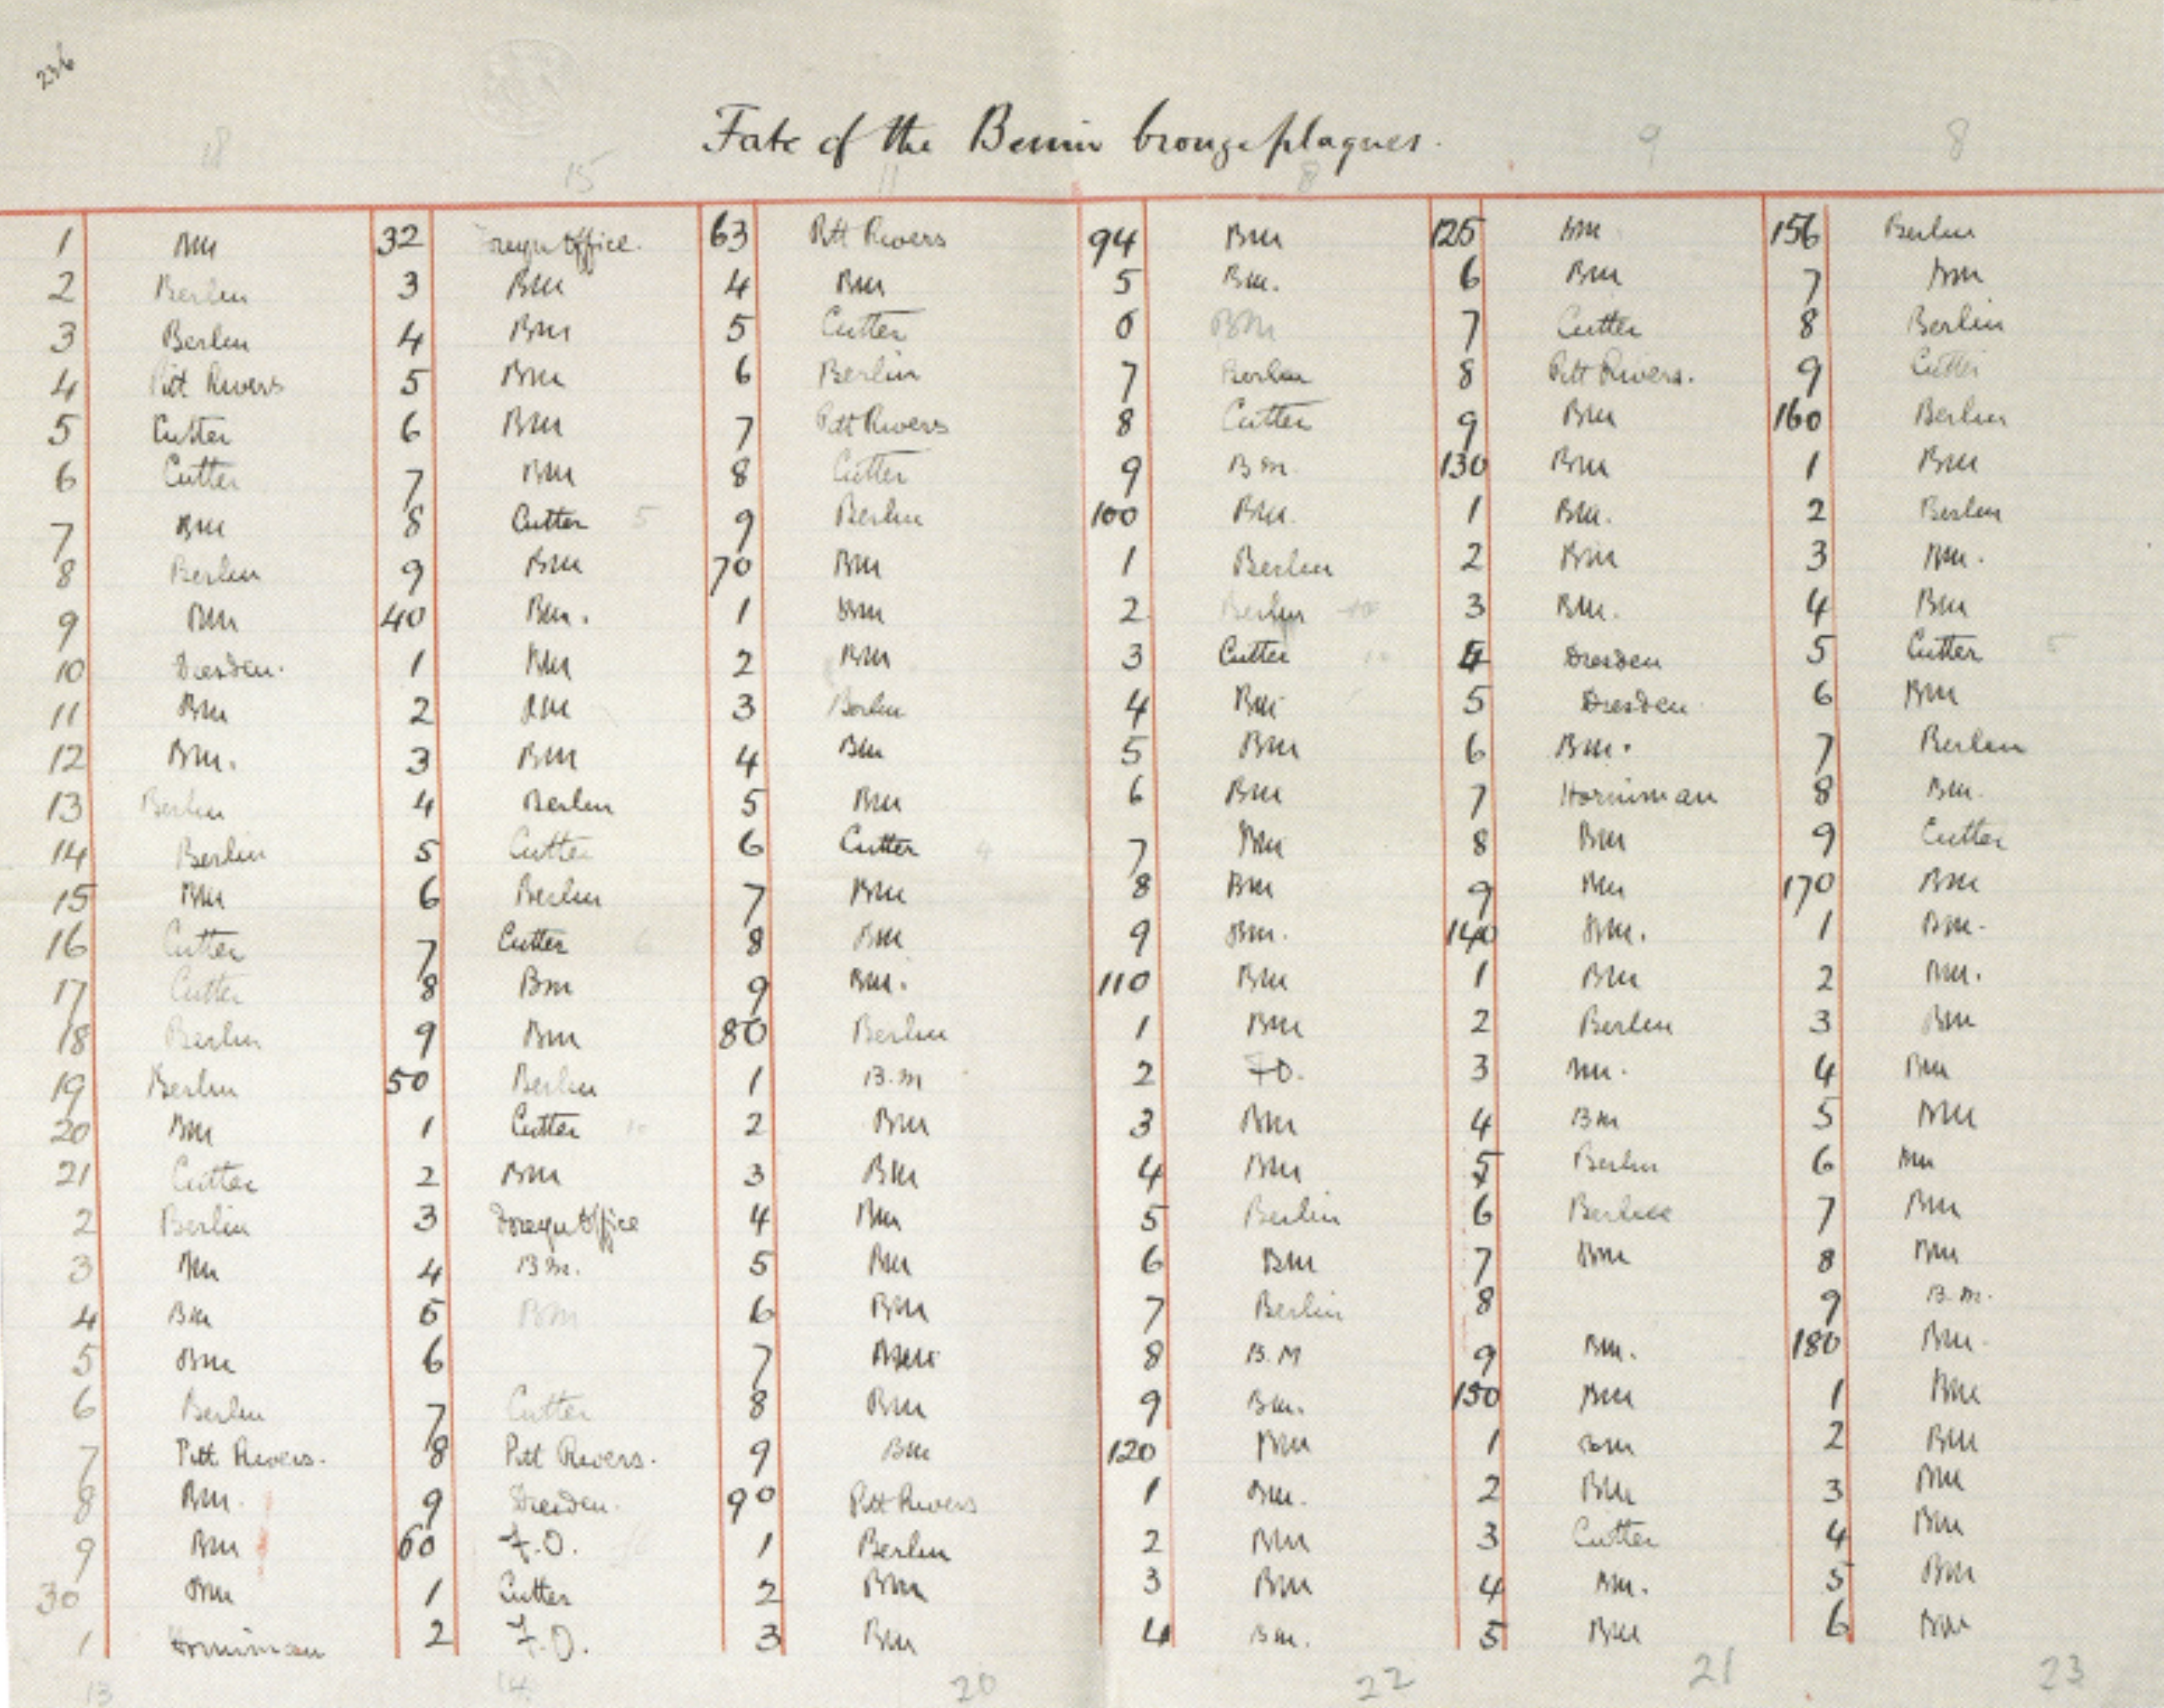 236
Fate of the Benin bronze plaques.
18 15 11 8 9 8
1 BM 32 Foreign Office. 63 Pitt Rivers 94 BM 125 BM 156 Berlin
2 Berlin 3 BM 4 BM 5 BM. 6 BM 7 BM
3 Berlin 4 BM 5 Cutter 6 BM 7 Cutter 8 Berlin
4 Pitt Rivers 5 BM 6 Berlin 7 Berlin 8 Pitt Rivers. 9 Cutter
5 Cutter 6 BM 7 Pitt Rivers 8 Cutter 9 BM 160 Berlin
6 Cutter 7 BM 8 Cutter 9 B.M. 130 BM 1 BM
7 BM 8 Cutter 5 9 Berlin 100 BM. 1 BM. 2 Berlin
8 Berlin 9 BM 70 BM 1 Berlin 2 BM 3 BM.
9 BM 40 BM. 1 BM 2 Berlin 3 BM. 4 BM
10 Dresden. 1 BM 2 BM 3 Cutter 4 Dresden 5 Cutter 5
11 BM 2 BM 3 Berlin 4 BM 5 Dresden 6 BM
12 BM. 3 BM 4 BM 5 BM 6 BM. 7 Berlin
13 Berlin 4 Berlin 5 BM 6 BM 7 Horniman 8 BM.
14 Berlin 5 Cutter 6 Cutter 4 7 BM 8 BM 9 Cutter
15 BM 6 Berlin 7 BM 8 BM 9 BM 170 BM
16 Cutter 7 Cutter 6 8 BM 9 BM. 140 BM. 1 BM.
17 Cutter 8 BM 9 BM. 110 BM 1 BM 2 BM.
18 Berlin 9 BM 80 Berlin 1 BM 2 Berlin 3 BM
19 Berlin 50 Berlin 1 B.M 2 F.O. 3 BM. 4 BM
20 BM 1 Cutter 10 2 BM 3 BM 4 BM 5 BM
21 Cutter 2 BM 3 BM 4 BM 5 Berlin 6 BM
2 Berlin 3 Foreign Office 4 BM 5 Berlin 6 Berlin 7 BM
3 BM 4 BM. 5 BM 6 BM 7 BM 8 BM
4 BM 5 BM 6 BM 7 Berlin 8 9 B.M.
5 BM 6 7 BM 8 B.M 9 BM. 180 BM.
6 Berlin 7 Cutter 8 BM 9 BM. 150 BM 1 BM
7 Pitt Rivers. 8 Pitt Rivers. 9 BM 120 BM 1 BM 2 BM
8 BM. 9 Dresden. 90 Pitt Rivers 1 BM. 2 BM 3 BM
9 BM 60 F.O. 1 Berlin 2 BM 3 Cutter 4 BM
30 BM 1 Cutter 2 BM 3 BM 4 BM. 5 BM
1 Horniman 2 F.O. 3 BM 4 BM. 5 BM 6 BM
13 14 20 22 21 23